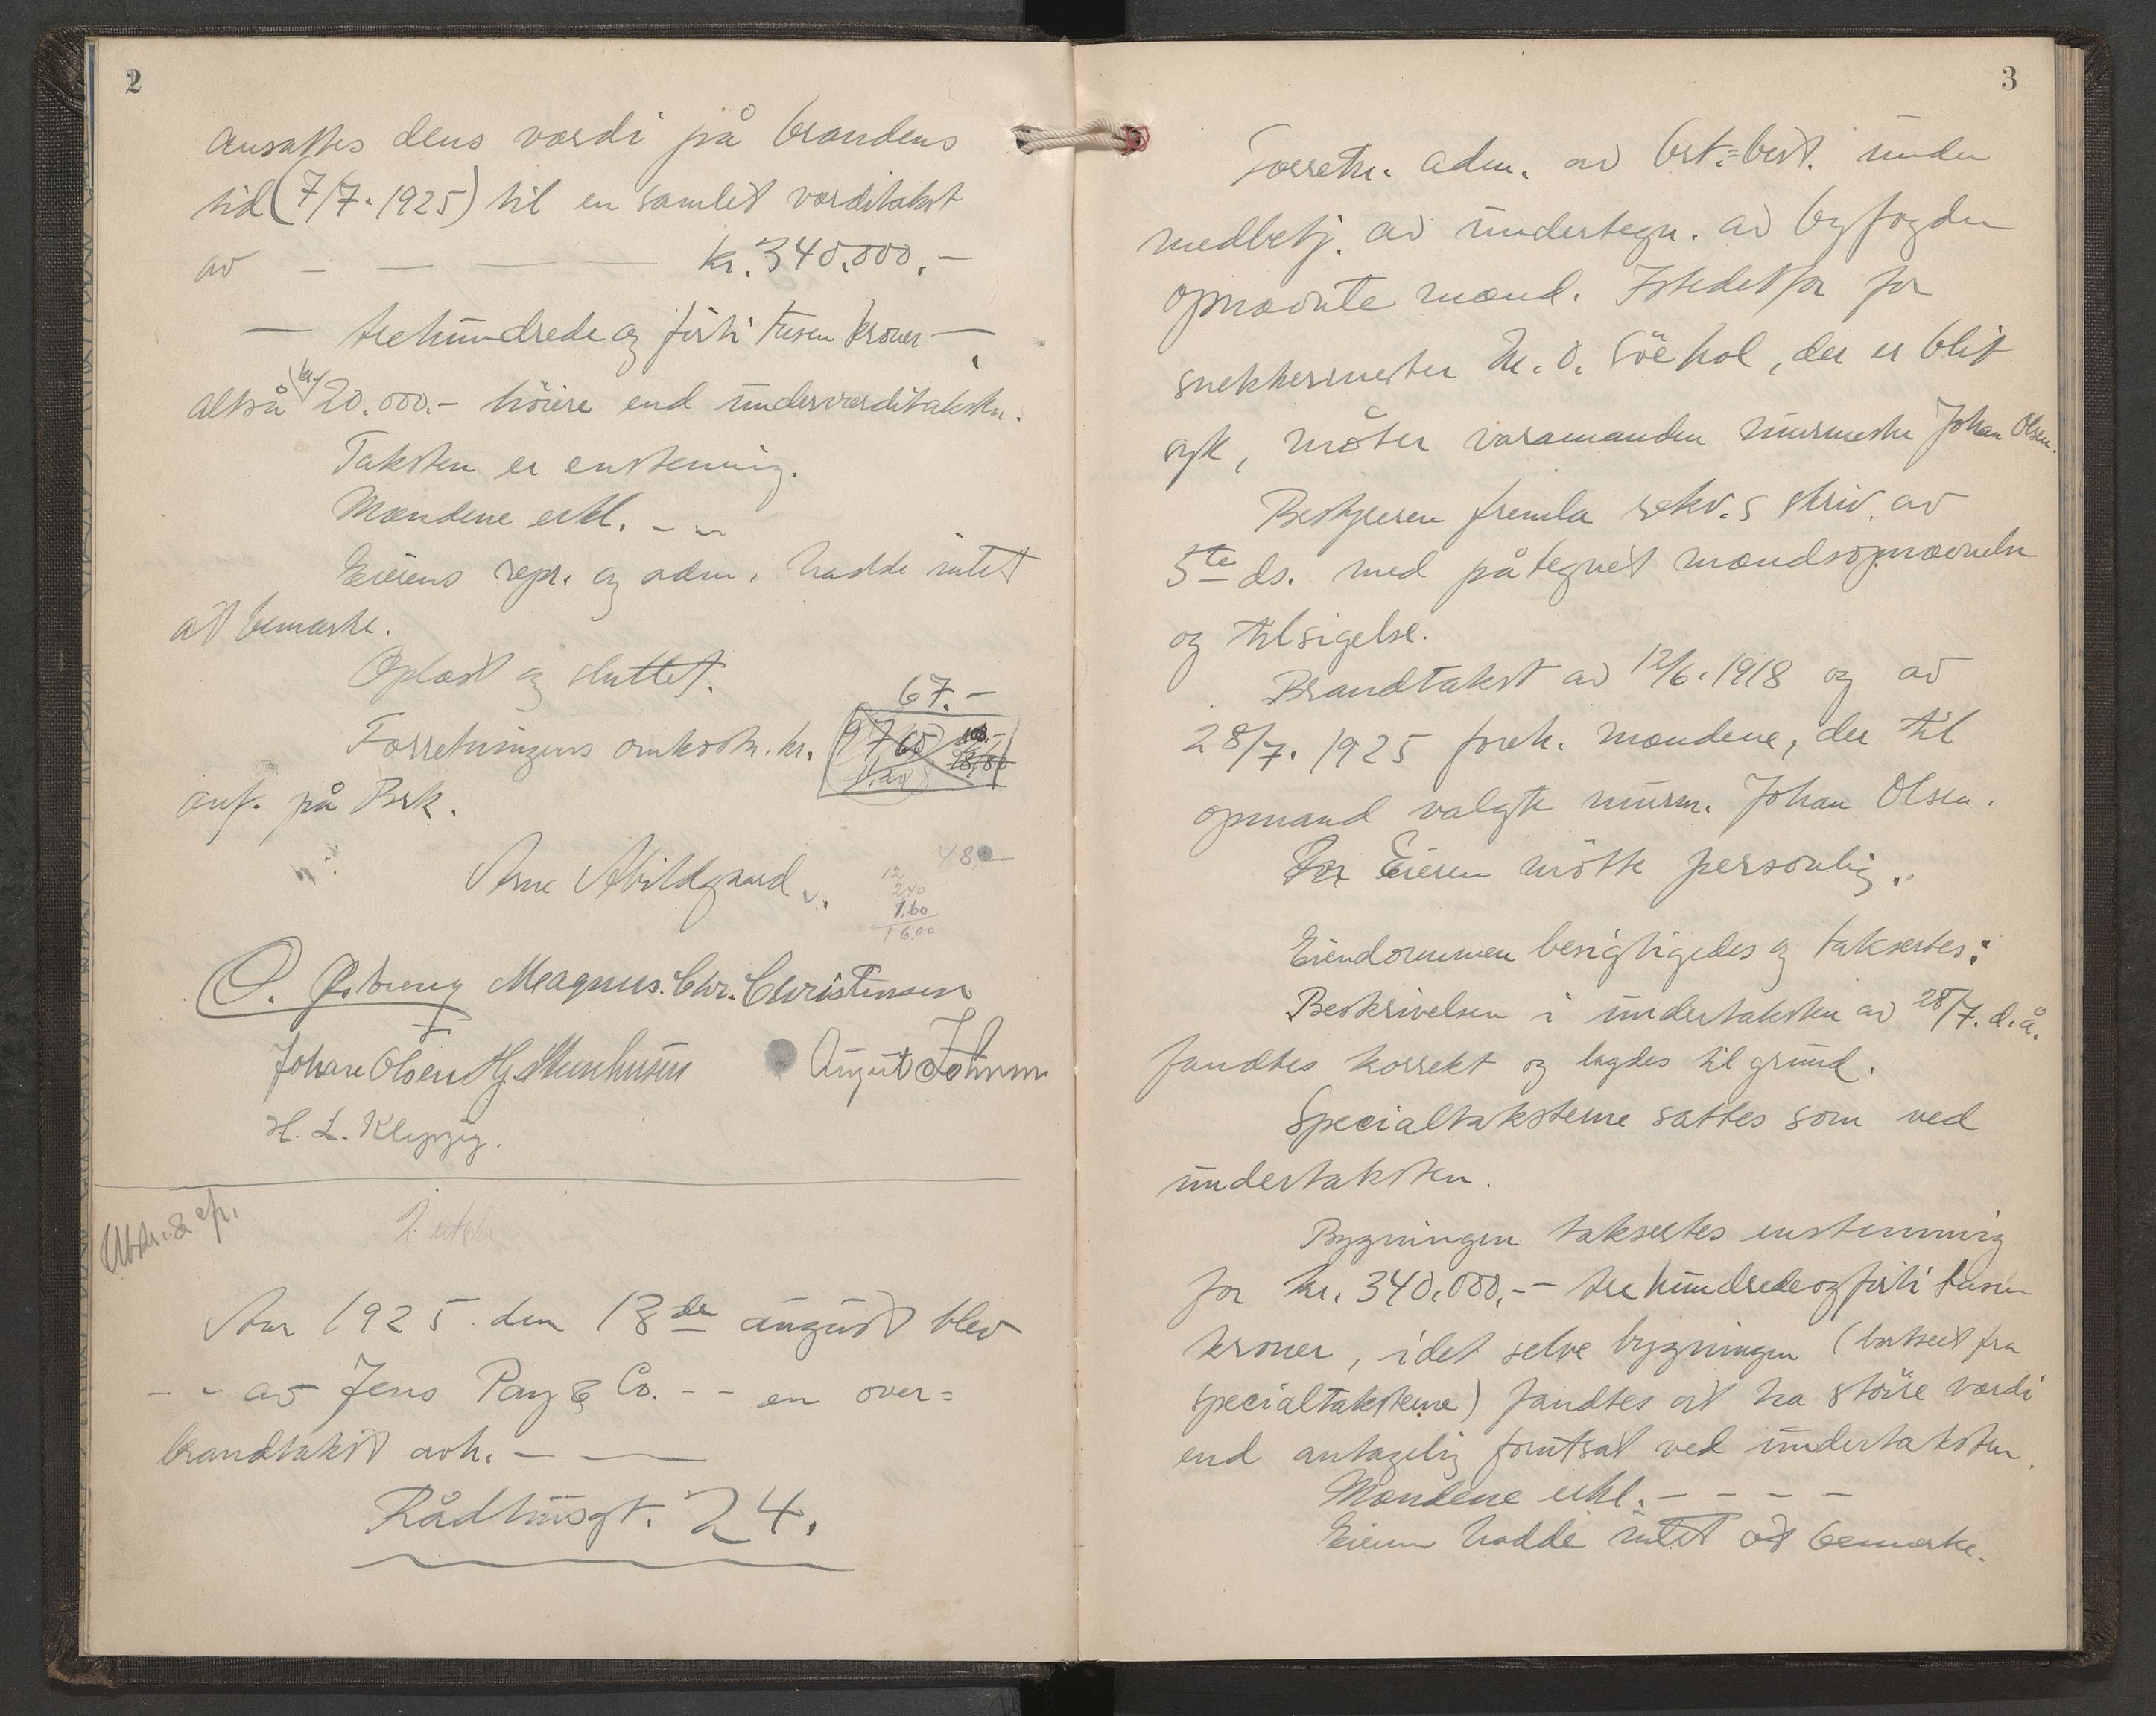 2
ansattes dens værdi på brandens
tid (7/7. 1925) til en samlet værditakst
av — — — — kr. 340.000,-
— trehundrede og firti tusen kroner —,
altså kr. 20.000.- höiere end underværditaksten.
Taksten er enstemmig.
Mændene erkl. - -
Eierens repr. og adm. hadde intet
at bemærke.
Oplæst og sluttet.
67.-
Forretningens omkostn. kr.
anf. på Brk.
Arne Abildgaard
48,-
12
240
1,60
16.00
O. Magnus. Chr. Christensen
Johan Olsen Hj. August
H. L.
Rådhusgt. 24.
An 1925 den 18de august blev
- - av Jens Pay & Co. - - en over=
brandtakst avh. - —
3
Forretn. adm. av brt.=best. under
medbetj. av undertegn. av byfogden
opnævnte mænd. Istedetfor for
snekkermester M. O. , der er blit
syk, möter varamanden murmester Johan Olsen.
Bestyreren fremla rekv.s skriv. av
5te ds. med påtegnet mændsopnævnelse
og tilsigelse.
Brandtakst av 12/6. 1918 og av
28/7. 1925 forek. mændene, der til
opmand valgte murm. Johan Olsen.
For Eieren mötte personlig.
Eiendommen besigtigedes og taksertes:
Beskrivelsen i undertaksten av 28/7. d.å.
fandtes korrekt og lagdes til grund.
Specialtaksterne sattes som ved
undertaksten.
Bygningen taksertes enstemmig
for kr. 340.000,-- trehundrede og firti tusen
kroner, idet selve bygningen (bortseet fra
specialtaksterne) fandtes at ha större værdi
end antagelig forutsat ved undertaksten.
Mændene erkl. - - - -
Eieren hadde intet at bemærke.